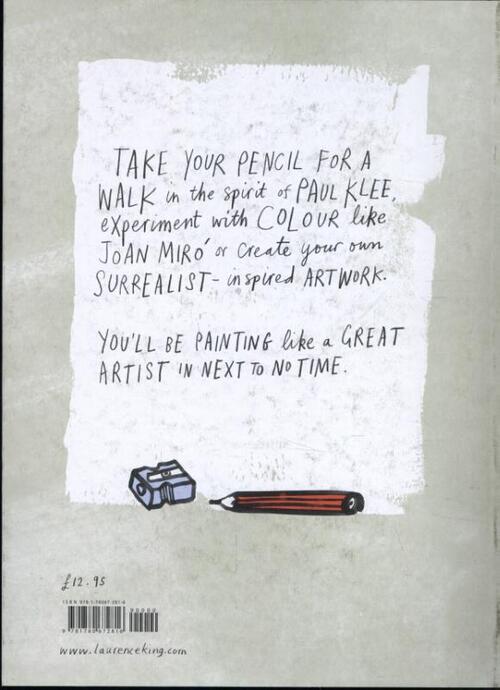 TAKE YOUR PENCIL FOR A
WALK in the spirit of PAUL KLEE,
experiment with COLOUR like
JOAN MIRÓ or create your own
SURREALIST-inspired ARTWORK.
YOU'LL BE PAINTING like a GREAT
ARTIST IN NEXT TO NO TIME.
£12.95
90000
www.laurenceking.com